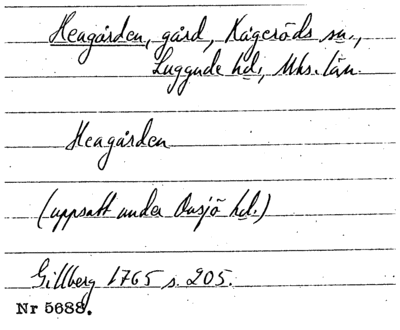 Heagården, gård, Kågeröds sn.,
Luggude hd., Mhs. län.
Heagården
(uppsatt under Onsjö hd.)
Gillberg 1765 s. 205.
Nr 5688.